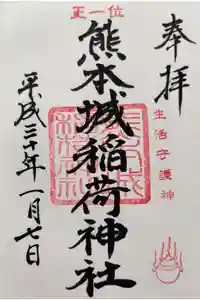 奉拝
生活守護神
正一位
熊本城稲荷神社
平成三十年一月七日